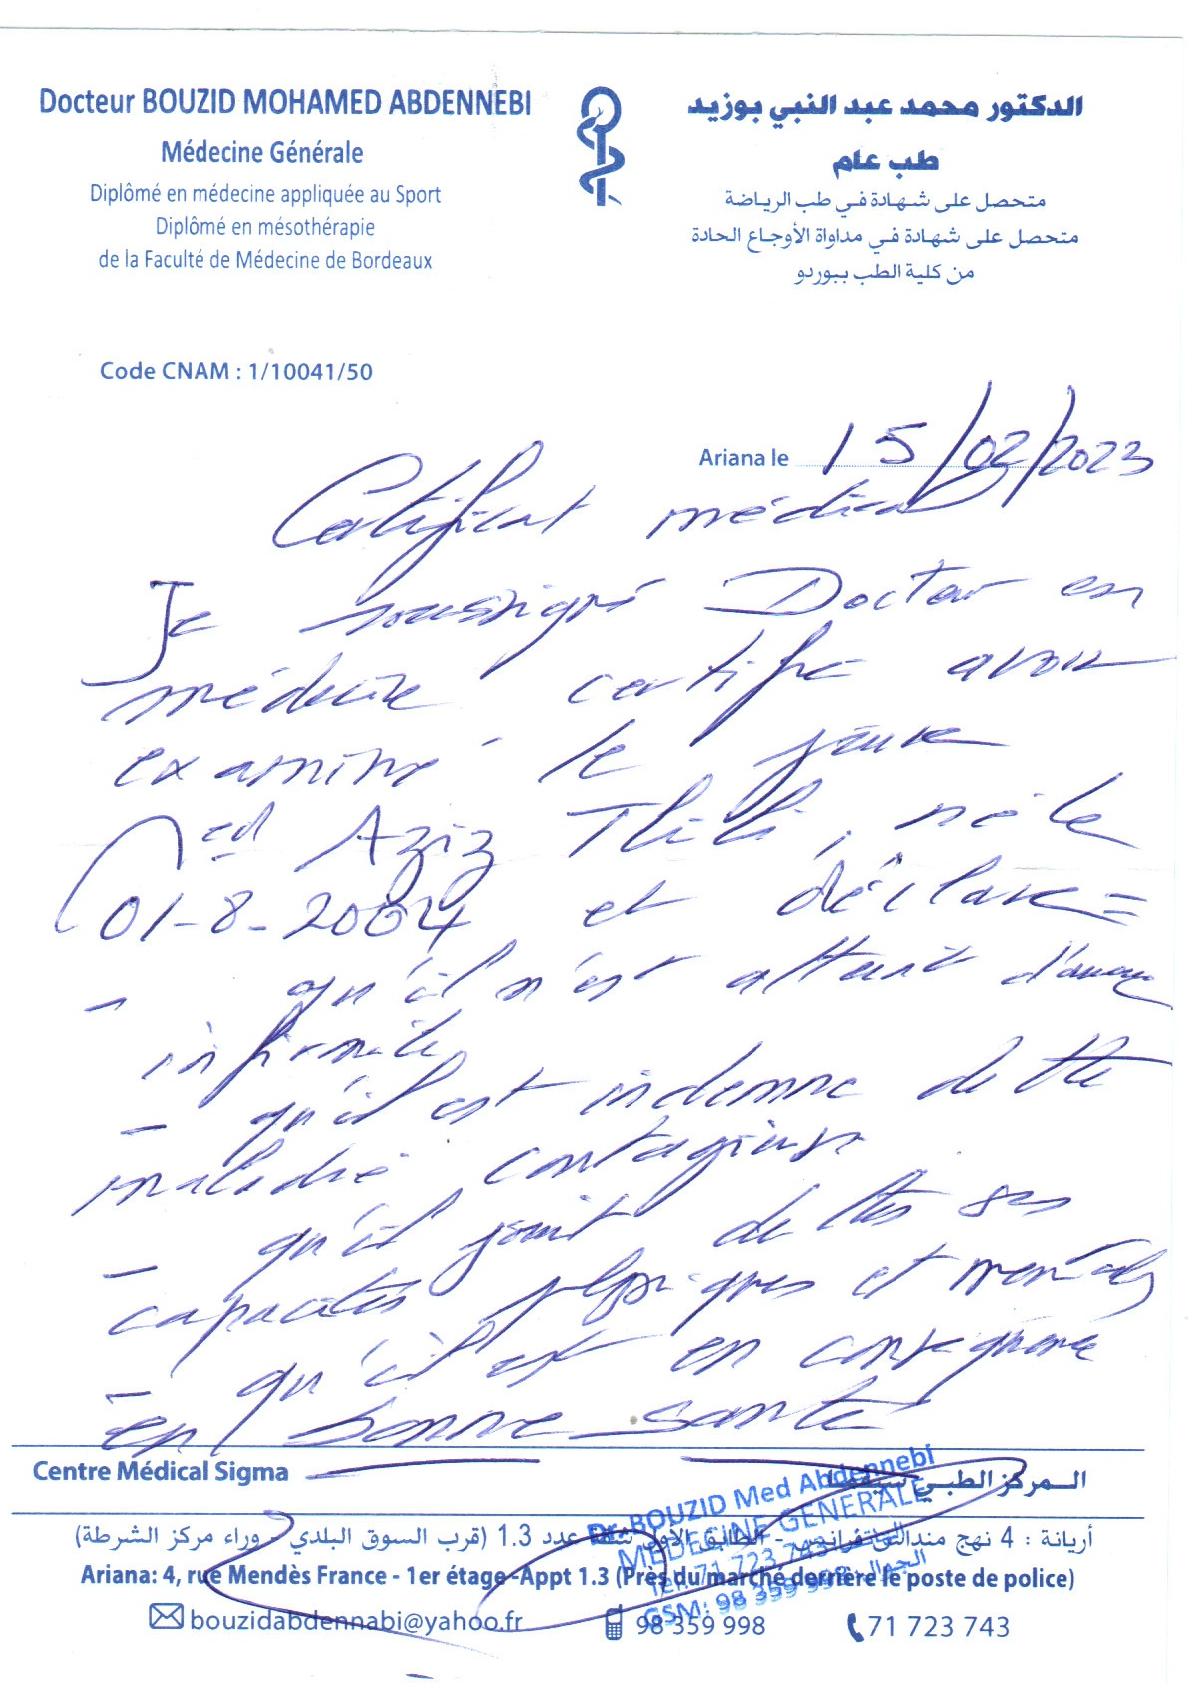 Docteur BOUZID MOHAMED ABDENNEBI
Médecine Générale
Diplômé en médecine appliquée au Sport
Diplômé en mésothérapie
de la Faculté de Médecine de Bordeaux
الدكتور محمد عبد النبي بوزيد
طب عام
متحصل على شهادة في طب الرياضة
متحصل على شهادة في مداواة الأوجاع الحادة
من كلية الطب ببوردو
Code CNAM : 1/10041/50
Ariana le 15/02/2023
Certificat médical
Je soussigné Docteur en
médecine certifie avoir
examiné le jeune
Med Aziz Thlibi, né le
01-8-2004 et déclare =
- qu'il n'est atteint d'aucune
infirmité
- qu'il est indemne de tte
maladie contagieuse
- qu'il jouit de ttes ses
capacités physiques et mentales
- qu'il est en conséquence
en bonne santé
Centre Médical Sigma
المركز الطبي سيغما
Dr. BOUZID Med Abdennebi
MEDECINE GENERALE
Tel: 71 723 743
GSM: 98 359 998 الجوال
أريانة : 4 نهج منداس فرانس - الطابق الأول شقة عدد 1.3 (قرب السوق البلدي - وراء مركز الشرطة)
Ariana: 4, rue Mendès France - 1er étage-Appt 1.3 (Près du marché derrière le poste de police)
bouzidabdennabi@yahoo.fr
98 359 998
71 723 743